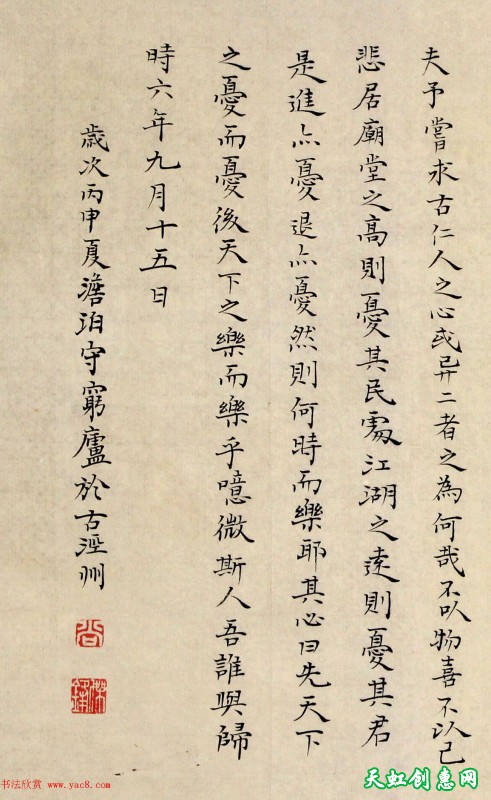 夫予嘗求古仁人之心或异二者之為何哉不以物喜不以己
悲居廟堂之高則憂其民處江湖之遠則憂其君
是進亦憂退亦憂然則何時而樂耶其心曰先天下
之憂而憂後天下之樂而樂乎噫微斯人吾誰與歸
時六年九月十五日
歲次丙申夏澹泊守窮廬於古涇州
书法欣赏 www.yac8.com
天虹创惠网